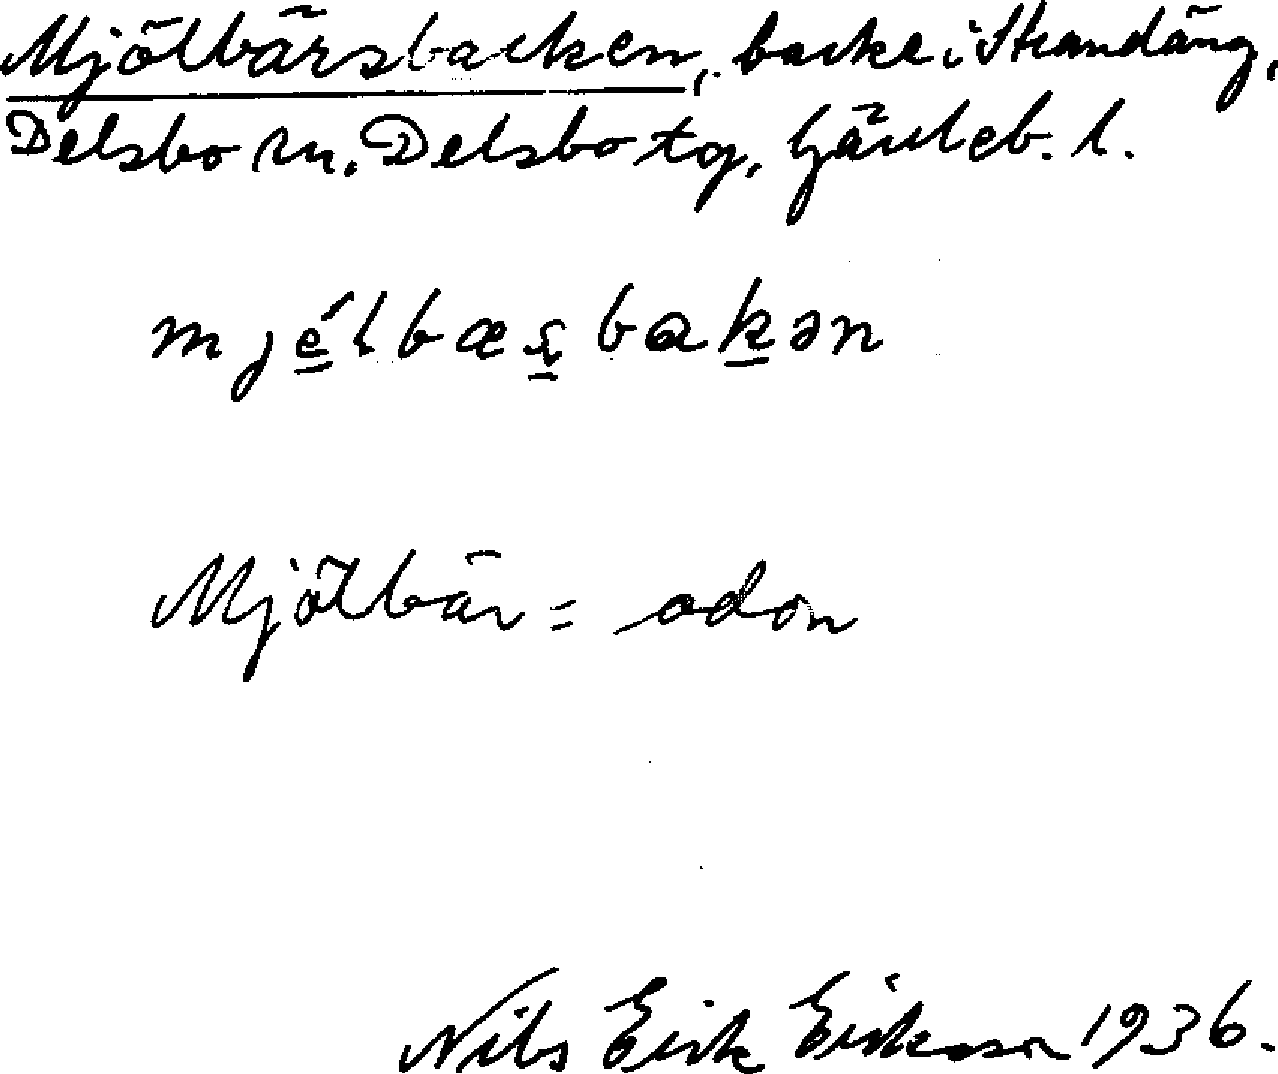 Mjölbärsbacken, backe i Strandäng,
Delsbo sn. Delsbo tg, Gävleb. l.
mjélbæʂbakən
Mjölbär = odon
Nils Erik Eriksson 1936.